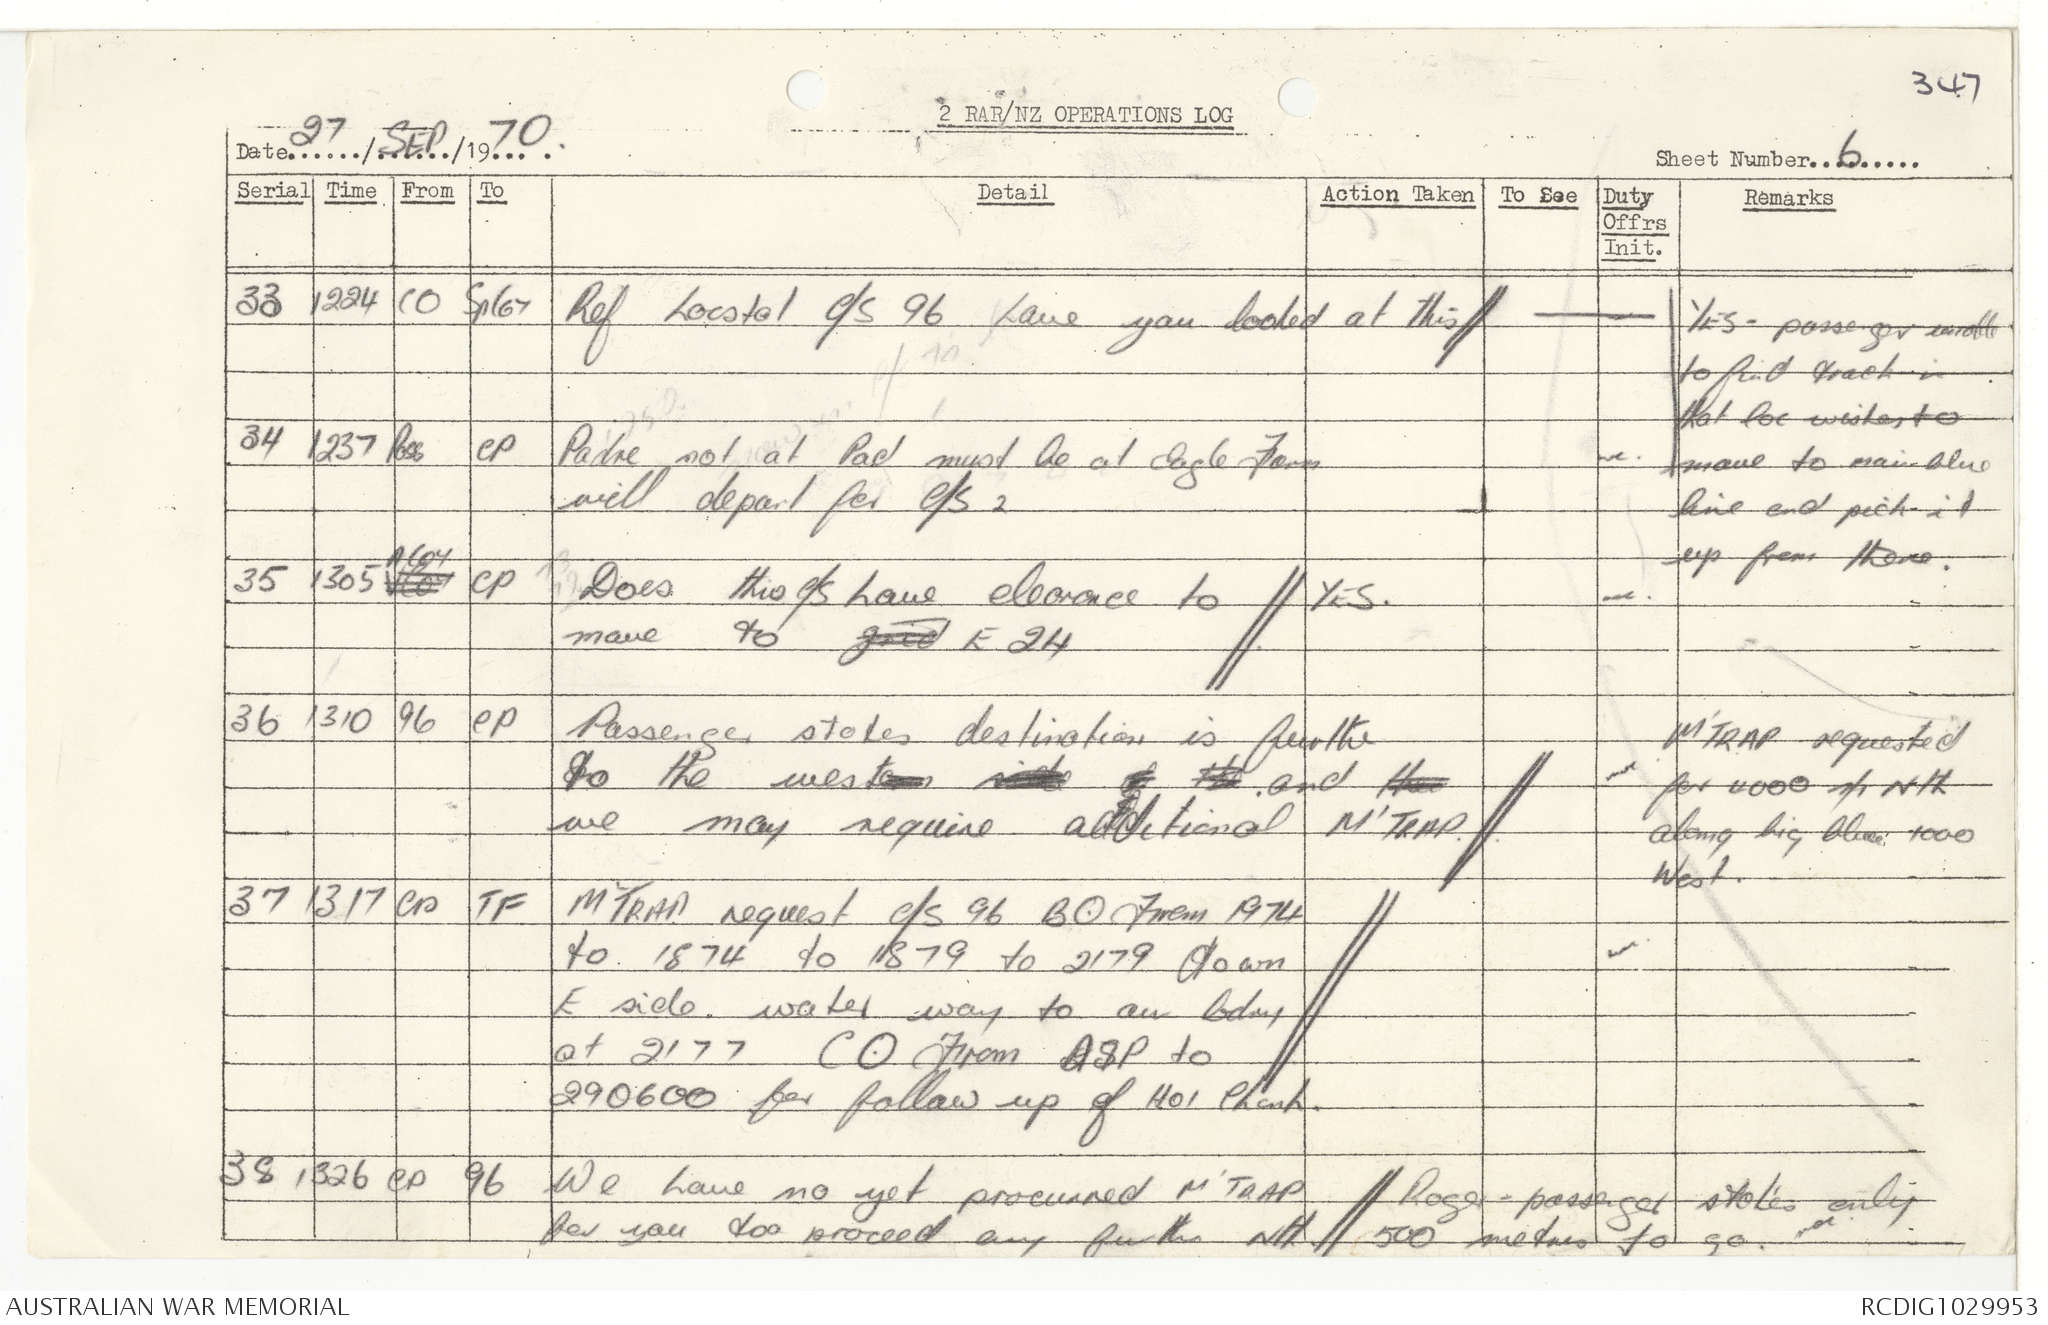 347
2 RAR/NZ OPERATIONS LOG
Date 27/SEP/1970.
Sheet Number 6
Serial Time From To Detail Action Taken To See Duty Offrs Init. Remarks
33 1224 CO Ref Locstat c/s 96 have you looked at this // YES - passenger unable
to find track in
that loc wishes to
34 1237 CP Padre not at Pad must be at Eagle Farm move to main blue
will depart for c/s 2 line and pick it
up from there.
35 1305 CP Does this c/s have clearance to // YES.
move to grid E 24
36 1310 96 CP Passenger states destination is further M'TRAP requested
to the western side of the and for 4000 Nth
we may require additional M'TRAP. // along big blue 1000
West.
37 1317 CP TF M'TRAP request c/s 96 BO From 1974
to 1874 to 1879 to 2179 down
E side. water way to our bdry
at 2177 CO From ASP to
290600 for follow up of HOI Chanh.
38 1326 CP 96 We have no yet procurred M'TRAP // Roger - passenger states only
for you too proceed any further Nth. 500 metres to go.
AUSTRALIAN WAR MEMORIAL
RCDIG1029953